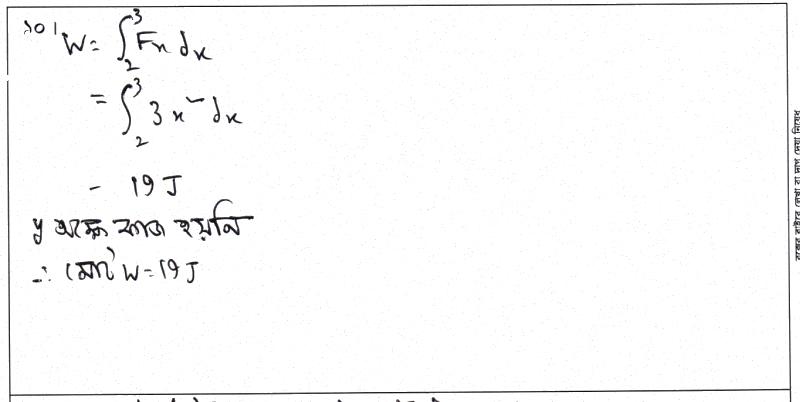 ১০। W = ∫₂³ Fx dx
= ∫₂³ 3x² dx
= 19 J
y অক্ষে কাজ হয়নি
∴ মোট W = 19 J
বক্সের বাইরে লেখা বা দাগ দেয়া নিষেধ